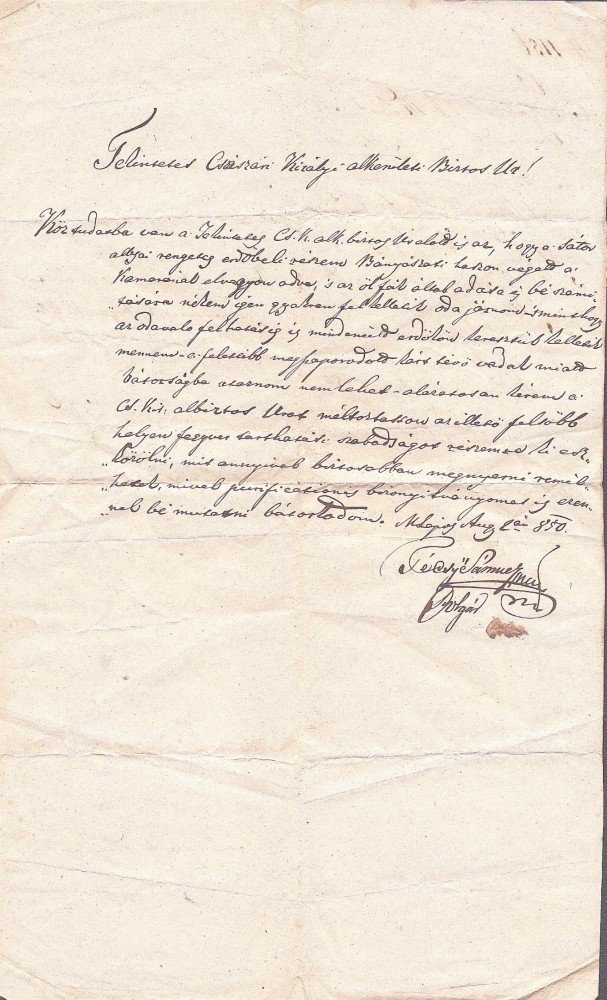 Tekintetes Császári Királyi alkerületi Biztos Ur!
Köz tudatba van a Tekintetes Cs. K. alk. biztos Ur előtt is az, hogy a sátor
alljai rengeteg erdőbeli részem Bányászati haszon végett a
Kamerának elvagyon adva, s az öl fák által adása és bé számi
"tására nékem igen gyakran fel kelletik oda járnom s mint hogy
az oda való felhatásig is mindenütt erdőkön keresztül kelletik
mennem - a felettébb megszaporodott kárt tévő vadak miatt
bátorságba utaznom nem lehet - alázatosan kérem a
Cs. Kir. albiztos Urat méltoztasson az illető felsőbb
helyen fegyver tarthatási szabadságot részemre ki esz"
"közölni, mit annyival biztosabban megnyerni remél"
"hetek, mivel purificationis bizonyitványomat is ezen"
"nel bé mutatni bátorkodom. Aug 850.
Técsy Sámuel
Polgár